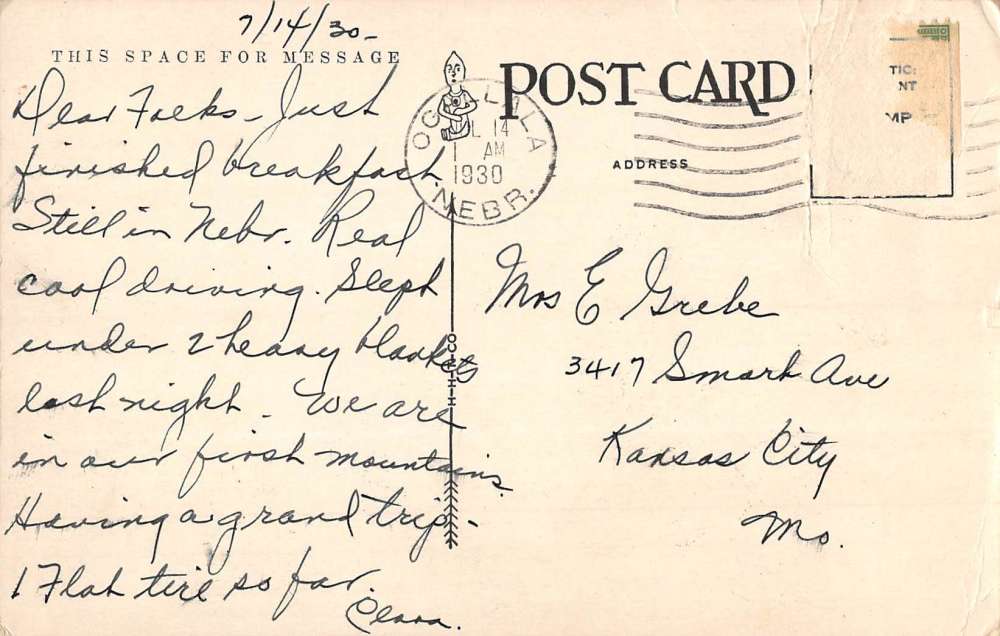 7/14/30-
THIS SPACE FOR MESSAGE
Dear Folks - Just
finished breakfast
Still in Nebr. Real
cool driving. Slept
under 2 heavy blankets
last night. We are
in our first mountains.
Having a grand trip -
1 Flat tire so far.
Clara.
H-H-N-CO
POST CARD
ADDRESS
OGALLALA
JUL 14
AM
1930
NEBR.
TIC:
NT
MP
Mrs E Grebe
3417 Smart Ave
Kansas City
Mo.